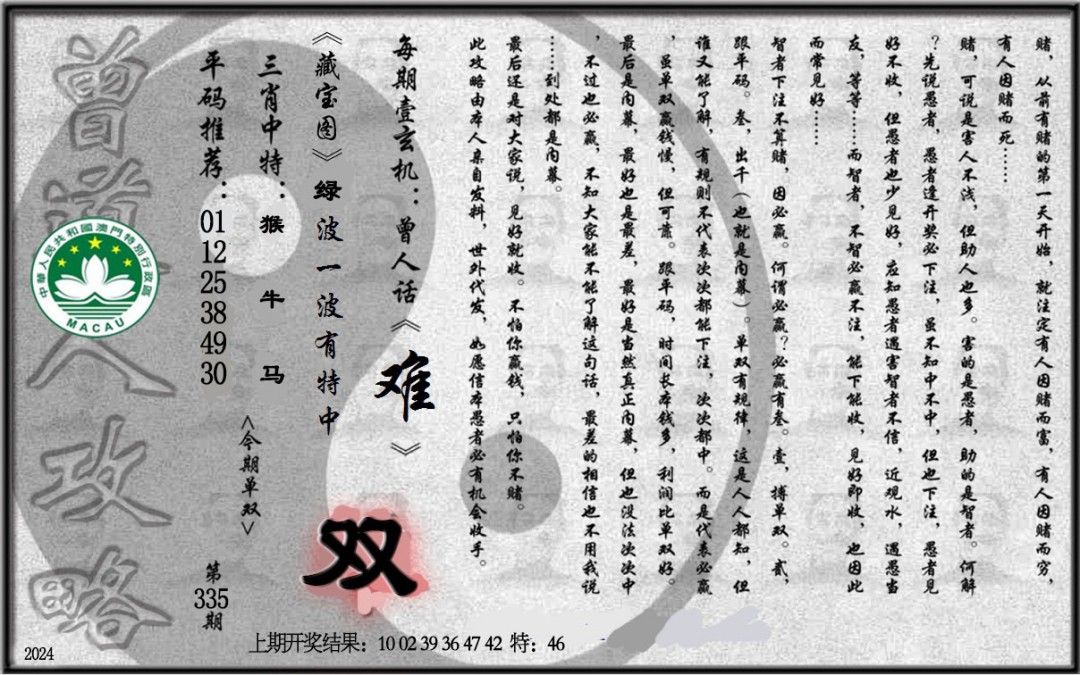 赌，从前有赌的第一天开始，就注定有人因赌而富，有人因赌而穷，
有人因赌而死……
赌，可说是害人不浅，但助人也多。害的是愚者，助的是智者。何解
？先说愚者，愚者逢开奖必下注，虽不知中不中，但也下注，愚者见
好不收，但愚者也少见好，应知愚者遇害智者不信，近观水，遇愚当
友，等等……而智者，不智必赢不注，能下能收，见好即收，也因此
而常见好……
智者下注不算赌，因必赢。何谓必赢？必赢有叁。壹，搏单双。贰，
跟平码。叁，出千（也就是内幕）。单双有规律，这是人人都知，但
谁又能了解，有规则不代表次次都能下注，次次都中。而是代表必赢
，虽单双赢钱慢，但可靠。跟平码，时间长本钱多，利润比单双好。
最后是内幕，最好也是最差，最好是当然真正内幕，但也没法次次中
，不过也必赢，不知大家能不能了解这句话，最差的相信也不用我说
……到处都是内幕。
最后还是对大家说，见好就收。不怕你赢钱，只怕你不赌。
此攻略由本人亲自发料，世外代发，如愿信本愚者必有机会收手。
每期壹玄机：曾人话《难》
《藏宝图》绿波一波有特中
双
三肖中特：猴 牛 马
<今期单双>
平码推荐：01 12 25 38 49 30
第335期
曾道人攻略
中華人民共和國澳門特別行政區
MACAU
上期开奖结果：10 02 39 36 47 42 特：46
2024